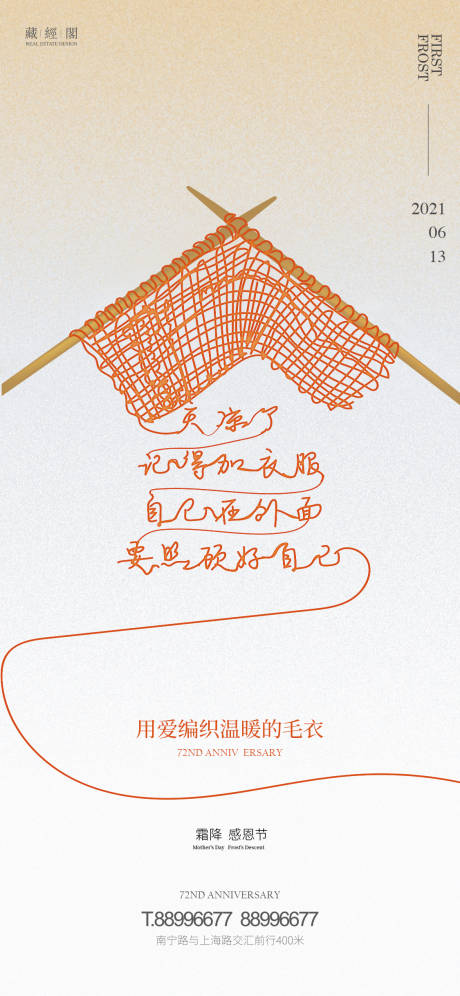 藏 經 閣
REAL ESTATE DESIGN
FIRST
FROST
2021
06
13
天凉了
记得加衣服
自己在外面
要照顾好自己
用爱编织温暖的毛衣
72ND ANNIV ERSARY
霜降 感恩节
Mother's Day Frost's Descent
72ND ANNIVERSARY
T.88996677 88996677
南宁路与上海路交汇前行400米